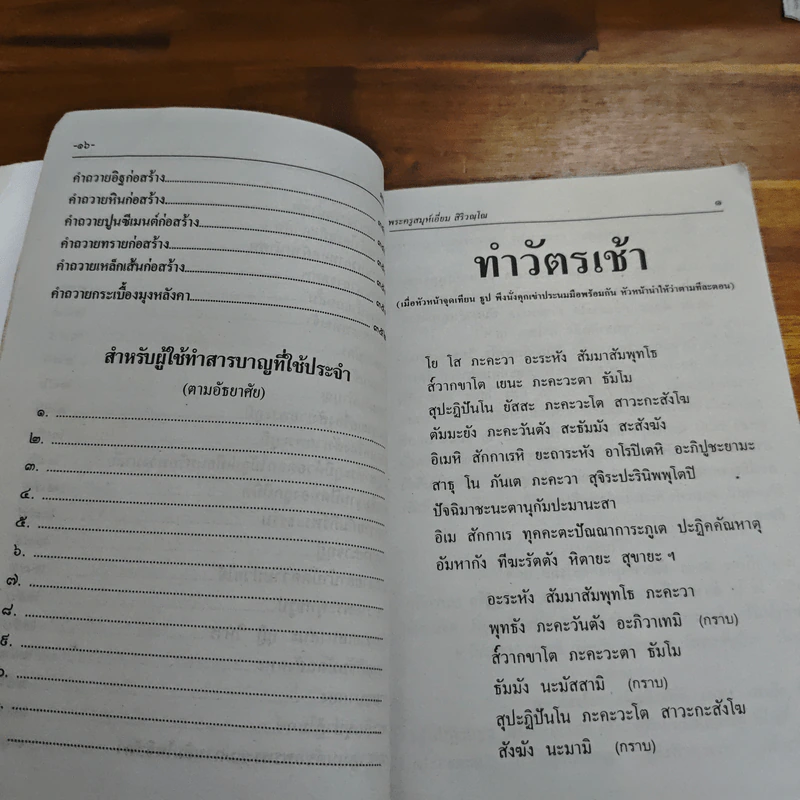 -๑๖-
คำถวายอิฐก่อสร้าง
คำถวายหินก่อสร้าง
คำถวายปูนซีเมนต์ก่อสร้าง
คำถวายทรายก่อสร้าง
คำถวายเหล็กเส้นก่อสร้าง
คำถวายกระเบื้องมุงหลังคา
สำหรับผู้ใช้ทำสารบาญที่ใช้ประจำ
(ตามอัธยาศัย)
๑.
๒.
๓.
๔.
๕.
๖.
๗.
๘.
๙.
พระครูสมุห์เอี่ยม สิริวณฺโณ ๑
ทำวัตรเช้า
(เมื่อหัวหน้าจุดเทียน ธูป พึงนั่งคุกเข่าประนมมือพร้อมกัน หัวหน้านำให้ว่าตามทีละตอน)
โย โส ภะคะวา อะระหัง สัมมาสัมพุทโธ
ส๎วากขาโต เยนะ ภะคะวะตา ธัมโม
สุปะฏิปันโน ยัสสะ ภะคะวะโต สาวะกะสังโฆ
ตัมมะยัง ภะคะวันตัง สะธัมมัง สะสังฆัง
อิเมหิ สักกาเรหิ ยะถาระหัง อาโรปิเตหิ อะภิปูชะยามะ
สาธุ โน ภันเต ภะคะวา สุจิระปะรินิพพุโตปิ
ปัจฉิมาชะนะตานุกัมปะมานะสา
อิเม สักกาเร ทุคคะตะปัณณาการะภูเต ปะฏิคคัณหาตุ
อัมหากัง ทีฆะรัตตัง หิตายะ สุขายะ ฯ
อะระหัง สัมมาสัมพุทโธ ภะคะวา
พุทธัง ภะคะวันตัง อะภิวาเทมิ (กราบ)
ส๎วากขาโต ภะคะวะตา ธัมโม
ธัมมัง นะมัสสามิ (กราบ)
สุปะฏิปันโน ภะคะวะโต สาวะกะสังโฆ
สังฆัง นะมามิ (กราบ)